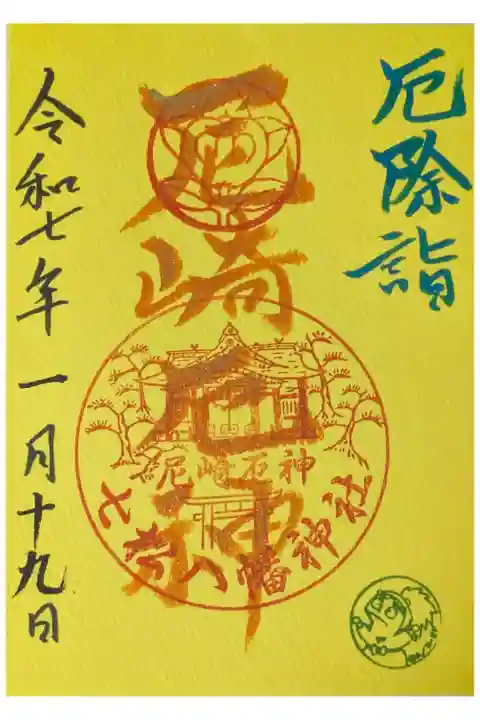 厄除詣
尼崎厄神
尼崎厄神
七松八幡神社
令和七年一月十九日